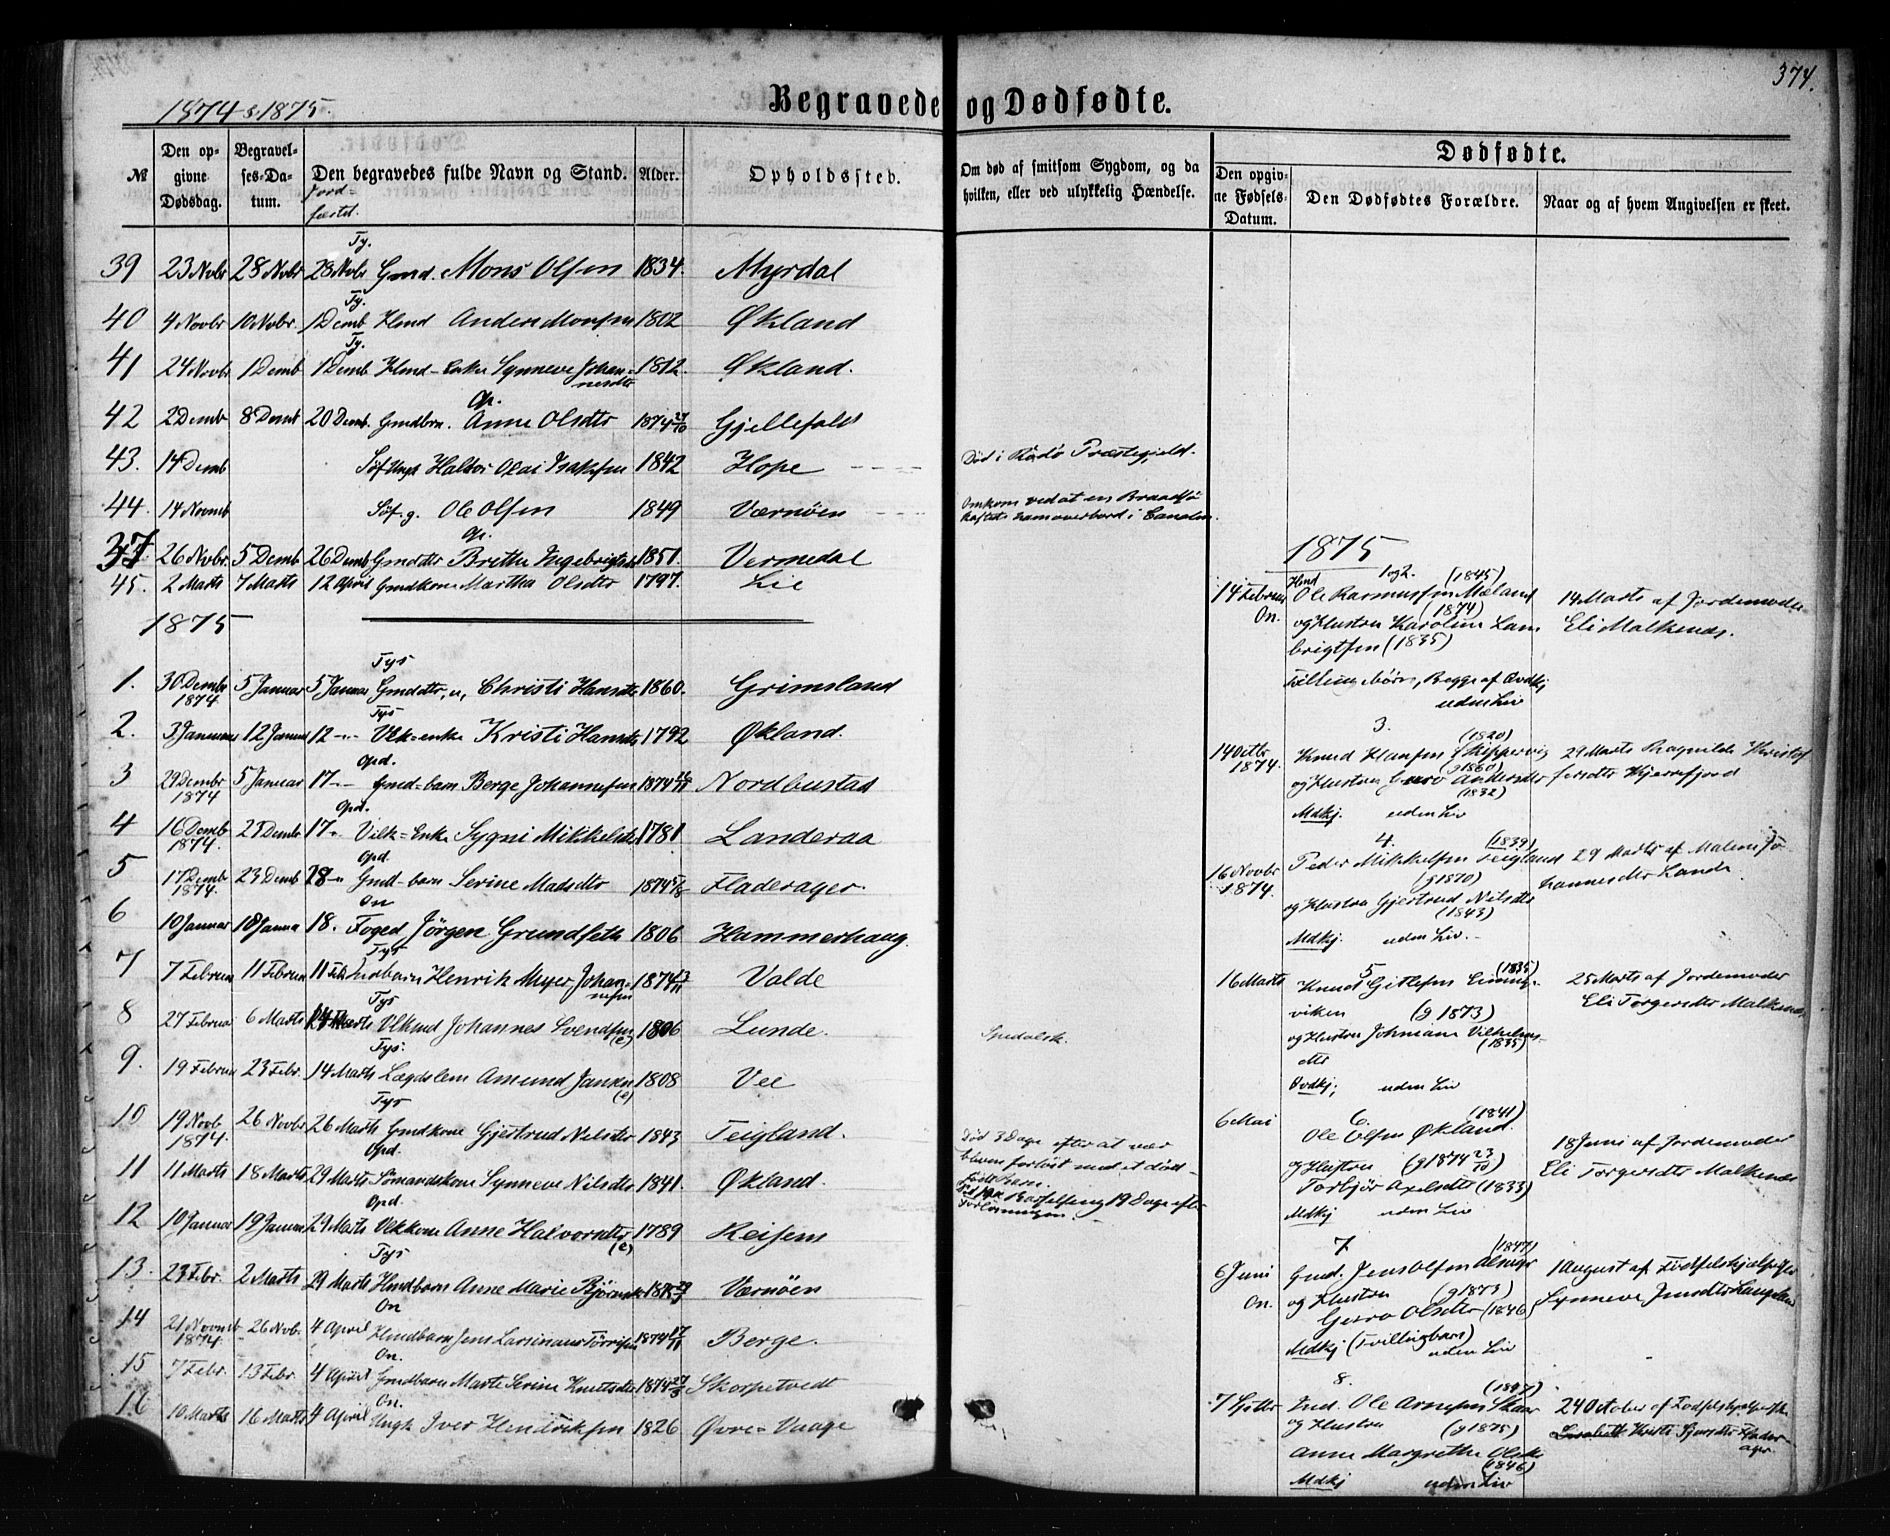 374.
1874 & 1875.
Begravede og Dødfødte.
№
Den opgivne Dødsdag.
Begravelses-Datum.
Den begravedes fulde Navn og Stand.
Jordfæstet.
Alder.
Opholdssted.
Om død af smitsom Sygdom, og da hvilken, eller ved ulykkelig Hændelse.
Dødfødte.
Den opgivne Fødsels-Datum.
Den Dødfødtes Forældre.
Naar og af hvem Angivelsen er skeet.
Ty.
39 23 Novbr 28 Novbr 28 Novbr Gmd. Mons Olsen 1834. Myrdal
Ty.
40 4 Novbr 10 Novbr. 1 Demb Hmd Anders Monsen 1802 Økland
Ty.
41 24 Novbr 1 Demb 1 Demb Hmd-Enke Synneve Johannesdtr 1812. Økland.
Op.
42 2 Demb 8 Demb 20 Demb. Gmdbrn. Anne Olsdtr 1874 27/10 Gjellefald
43. 14 Demb Halvor Olai Isaksen 1842 Hope Død i Rødø Præstegjeld.
44. 14 Novmb Søf. g. Ole Olsen 1849 Værnøen Omkom ved at en Braadsø kastede ham overbord i Canalen.
Op.
37 26 Novbr. 5 Demb 26 Demb Gmddtr Brithe Ingebrigtsd 1851. Vermedal
45. 2 Marts 7 Marts 12 April Gmdkone Martha Olsdtr 1797. Lie
1875
Tys
1. 30 Dembr 1874. 5 Januar 5 Januar Gmddtr, u, Christi Hansdtr 1860. Grimsland
Tys
2. 3 Januar 12 Januar 12 -"- Vlk-enke Kristi Hansdtr 1792 Økland.
Opd.
3 29 Dembr 1874 5 Januar 17 -"- Gmd-barn Berge Johannesen 1874 Nordbustad
Opd.
4 16 Demb 1874. 25 Demb 17 -"- Vilk-Enke Sygni Mikkelsd. 1781 Landeraa
Opd.
5 17 Demb 1874 23 Demb 18 -"- Gmd-barn Serine Madsdtr 1874 Fladerager.
On
6 10 Januar 18 Janua 18. Foged Jørgen Grundseth 1806 Hammerhaug.
Tys
7 7 Februar 11 Februar 11 Feb Indbarn Henrik Meyer Johannesen 1874 13/11 Valde
Tys
8 27 Februar 6 Marts 14 Marts Vlkmd Johannes Svendsen (e) 1806 Lunde. Spedalsk.
Tys.
9. 19 Februar 23 Febr. 14 Marts Lægdslem Amund Jansen (e) 1808 Vee
Tys
10 19 Novb 1874. 26 Novbr 26 Marts Gmdkone Gjertrud Nilsdtr 1843 Teigland. Død 3 Dage efter at vær bleven forløst med et dødfødt Barn.
Opd.
11 11 Marts 18 Marts 29 Marts Sømandskone Synneve Nilsdtr 1841. Økland. Død paa Barselseng 19 Dage efter Forløsningen.
Opd.
12 10 Januar 19 Januar 29 Marts Vlkkone Anne Halvorsdtr (e) 1789 Reisem
Tys
13. 23 Febr. 2 Marts 29 Marts Hmdbarn Anne Marie Bjørnsdtr Værnøen
On
14 21 Novmb 1874. 26 Nov. 4 April Hmdbarn Jens Larsinaus Tørrisen 1874 17/11 Berge.
On.
15 7 Febr. 13 Febr. 4 April Gmdbarn Marte Serine Knutsdtr 1874 Skorpetvedt
On.
16 10 Marts 16 Marts 4 April Ungk Iver Hendriksen 1826 Øvre-Vaage
1875
1 og 2.
14 Februar On. Hmd Ole Rasmussen Mæland (1845)
(1874)
og Hustru Karoline Lambrigtsen (1835)
Tvillingbørn, Begge af Qvdkj uden Liv
14 Marts af Jordemoder Eli Malkenæs.
3.
14 Octbr 1874. Knud Hansen Skippervig (1820)
(g 1860)
og Hustru Guro Andersdtr (1832)
Mdkj. uden Liv
29 Marts Ragnilde Kristofersdtr Kjerrefjord
4.
16 Novbr 1874. Peder Mikkelsen Teigland (1839)
(g 1870)
og Hustru Gjertrud Nilsdtr (1843)
Mdkj. uden Liv.
29 Marts af Malene Johannesdtr Lande.
5
16 Marts Knud Gitlesen Eminigviken (1835)
(g 1873)
og Hustru Johniane Vilhelmsdtr (1835)
Qvdkj. uden Liv
25 Marts af Jordemoder Eli Torgersdtr Malkenæs
6.
6 Mai Ole Olsen Økland. (1841)
og Hustru (g 1874 23/10)
Torbjør Axelsdtr (1833)
Mdkj uden Liv
18 Juni af Jordemoder Eli Torgersdtr Malkenæs
7.
6 Juni On. Gmd. Jens Olsen (1847)
og Hustru (g 1873)
Guro Olsdtr (1846)
Mdkj (Tvillingbarn) uden Liv
1 August af Fødselshjelperske Synneve Jensdtr
8.
7 Ind. Ole Arnesen Skaar (1847)
og Hustru (g 1875)
Anne Margrethe Olsdtr (1846)
Mdkj uden Liv
24 October af Fødselshjelperske Kirsti Sjursdtr Fladerager.